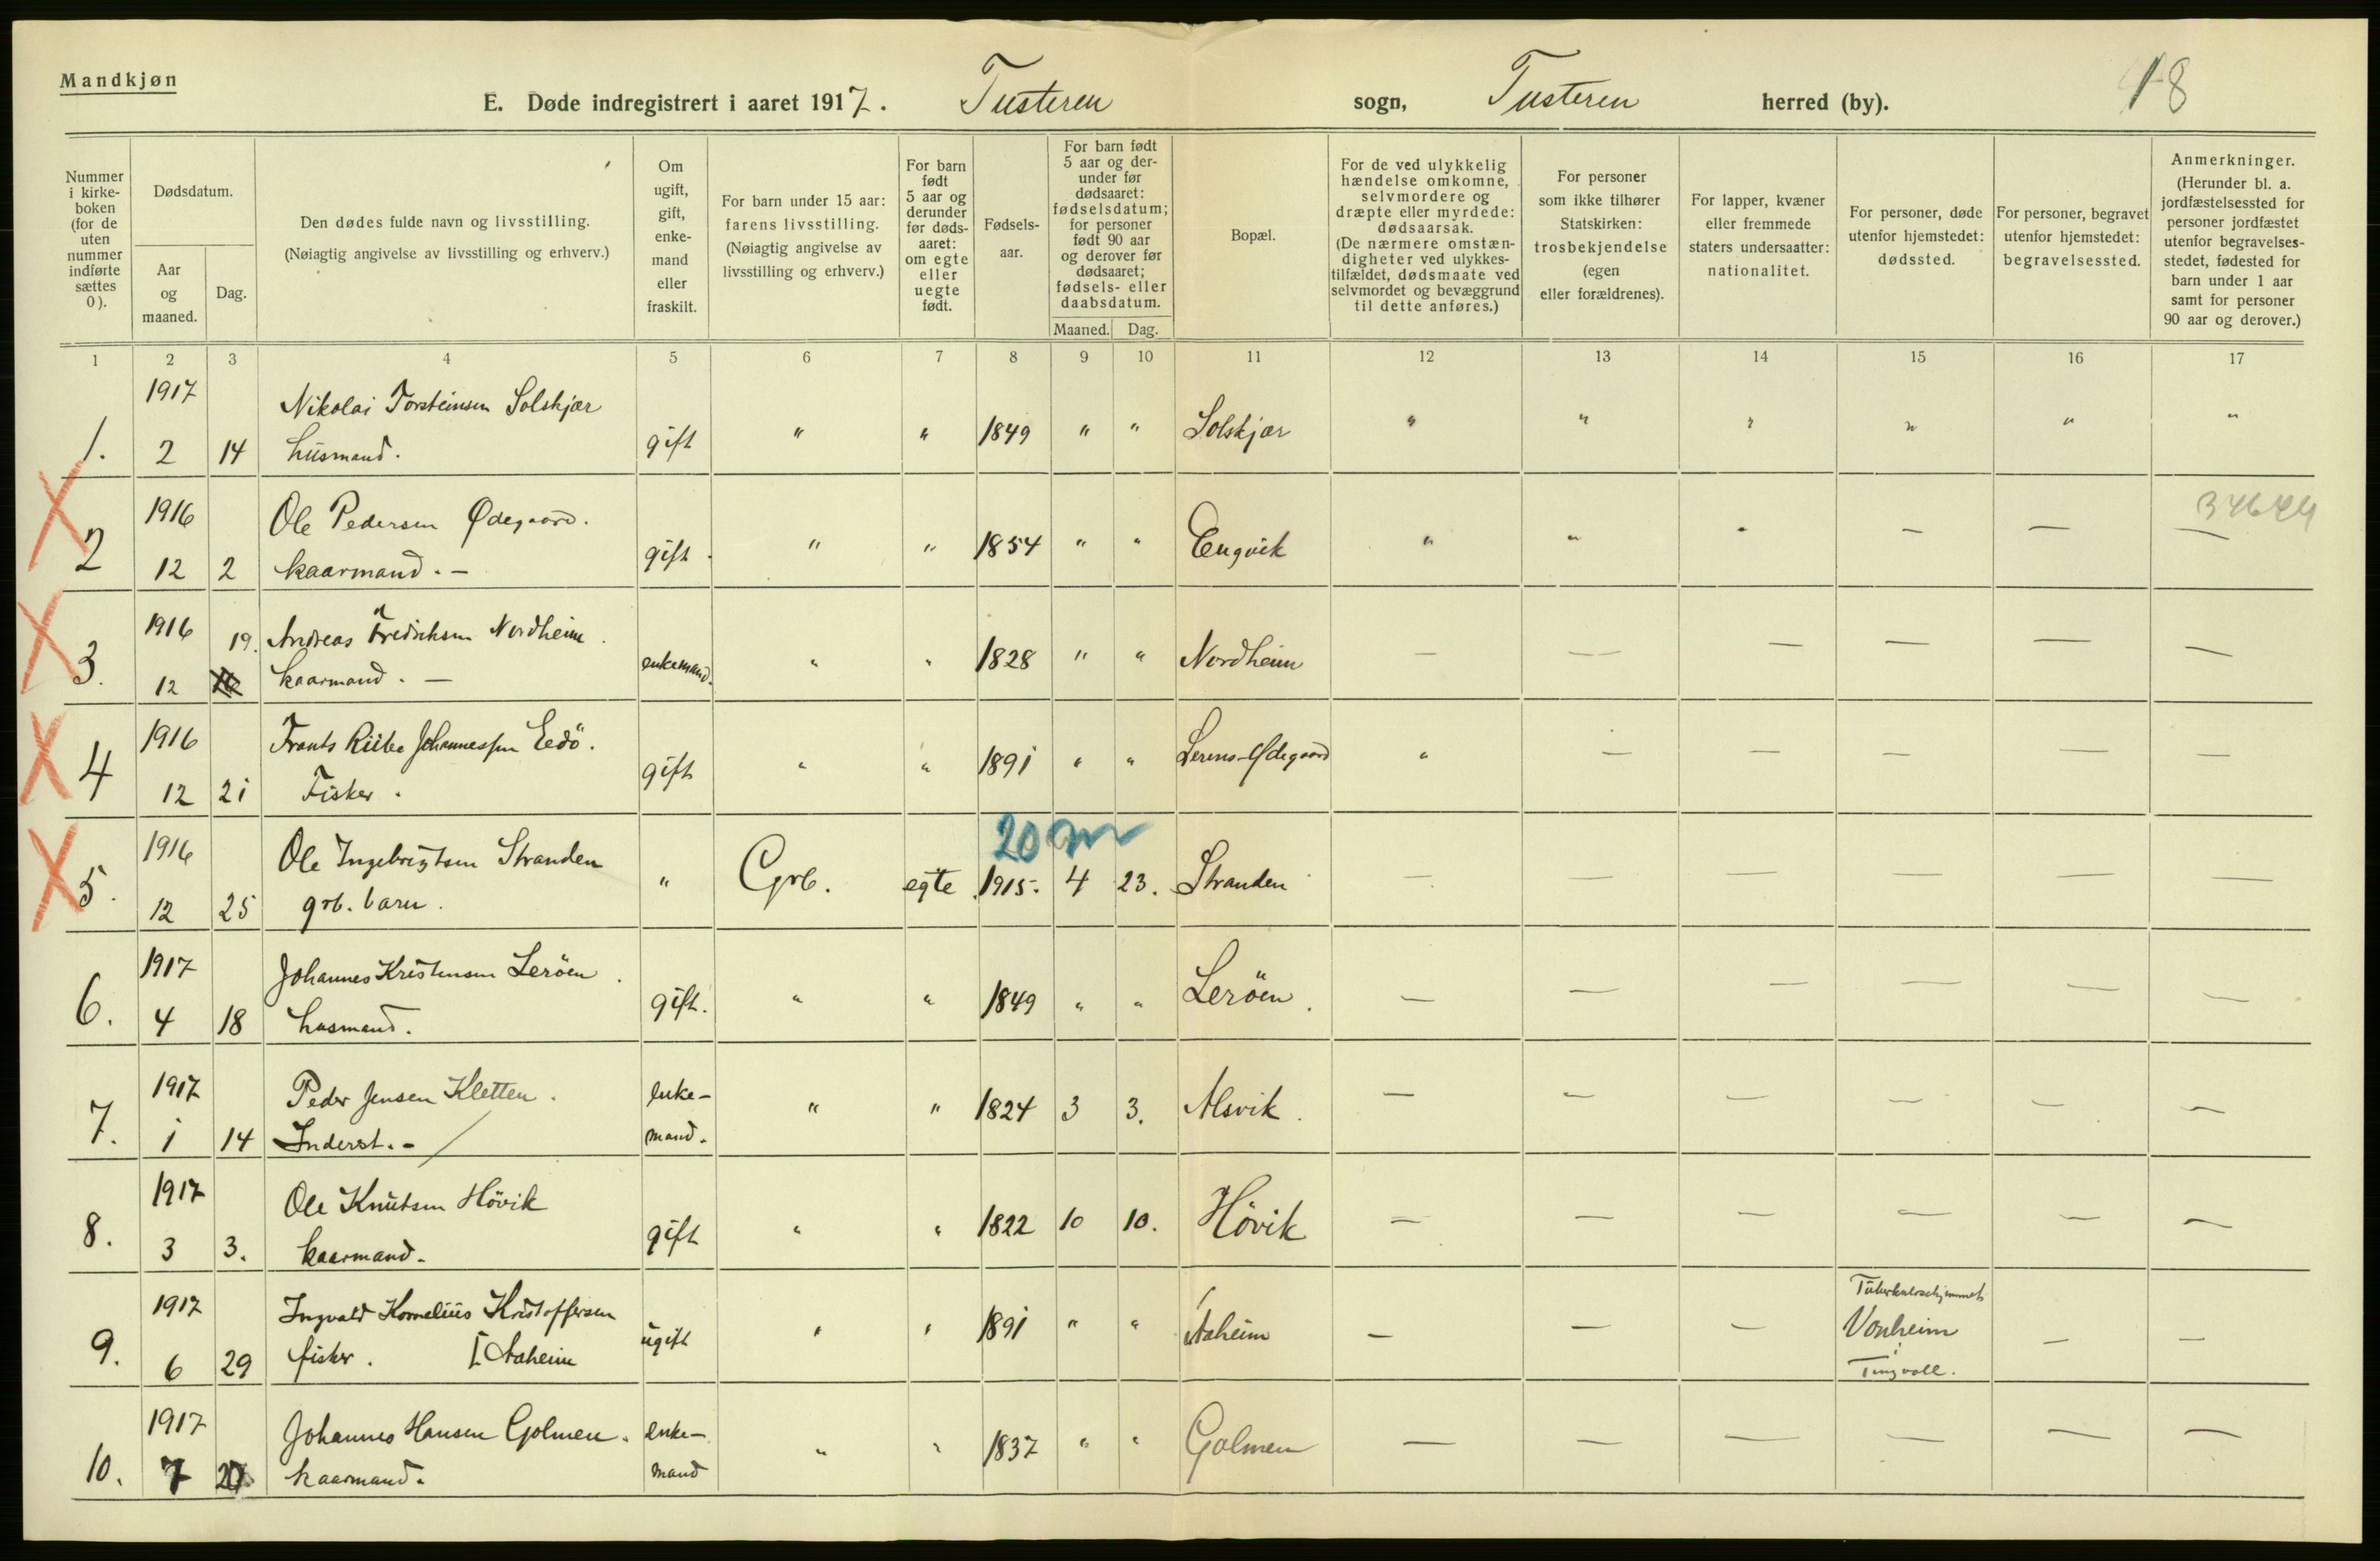 Mandkjøn
E. Døde indregistrert i aaret 1917. Tusteren sogn, Tusteren herred (by). 18
Nummer i kirkeboken (for de uten nummer indførte sættes 0).
Dødsdatum.
Aar og maaned.
Dag.
Den dødes fulde navn og livsstilling.
(Nøiagtig angivelse av livsstilling og erhverv.)
Om ugift, gift, enkemand eller fraskilt.
For barn under 15 aar: farens livsstilling.
(Nøiagtig angivelse av livsstilling og erhverv.)
For barn født 5 aar og derunder før dødsaaret: om egte eller uegte født.
Fødselsaar.
For barn født 5 aar og derunder før dødsaaret: fødselsdatum; for personer født 90 aar og derover før dødsaaret; fødsels- eller daabsdatum.
Maaned. Dag.
Bopæl.
For de ved ulykkelig hændelse omkomne, selvmordere og dræpte eller myrdede: dødsaarsak.
(De nærmere omstændigheter ved ulykkestilfældet, dødsmaate ved selvmordet og bevæggrund til dette anføres.)
For personer som ikke tilhører Statskirken: trosbekjendelse (egen eller forældrenes).
For lapper, kvæner eller fremmede staters undersaatter: nationalitet.
For personer, døde utenfor hjemstedet: dødssted.
For personer, begravet utenfor hjemstedet: begravelsessted.
Anmerkninger.
(Herunder bl. a. jordfæstelsessted for personer jordfæstet utenfor begravelsesstedet, fødested for barn under 1 aar samt for personer 90 aar og derover.)
1 2 3 4 5 6 7 8 9 10 11 12 13 14 15 16 17
1917 Nikolai Torsteinsen Solskjær
1. 2 14 husmand. gift " " 1849 " " Solskjær " " " " " "
1916 Ole Pedersen Ødegaard.
2 12 2 kaarmand. — gift " " 1854 " " Engvik " " " — — —
1916 19. Andreas Fredriksen Nordheim.
3. 12 kaarmand. — enkemand. " " 1828 " " Nordheim — — — — — —
1916 Frants Johannessen Edö.
4 12 21 Fisker. gift " " 1891 " " Lerens-Ødegaard " — — — — —
20 m
1916 Ole Ingebrigtsen Stranden
5. 12 25 grb. barn. " Grb. egte 1915. 4 23. Stranden — — — — — —
1917 Johannes Kristensen Leröen.
6. 4 18 husmand. gift. " " 1849 " " Leröen. — — — — — —
1917 Peder Jensen Kletten. enke-
7. 1 14 Inderst. - mand. " " 1824 3 3. Alsvik. — — — — — —
1917 Ole Knutsen Hövik
8. 3 3. kaarmand. gift " " 1822 10 10. Hövik — — — — — —
1917 Ingvald Kornelius Kristoffersen Tuberkulosehjemmet
9. 6 29 fisker. [Aaheim ugift " " 1891 " " Aaheim — — — Vonheim — —
i Tingvoll.
1917 Johannes Hansen Golmen. enke-
10. 7 20 kaarmand. mand " " 1837 " " Golmen — — — — — —